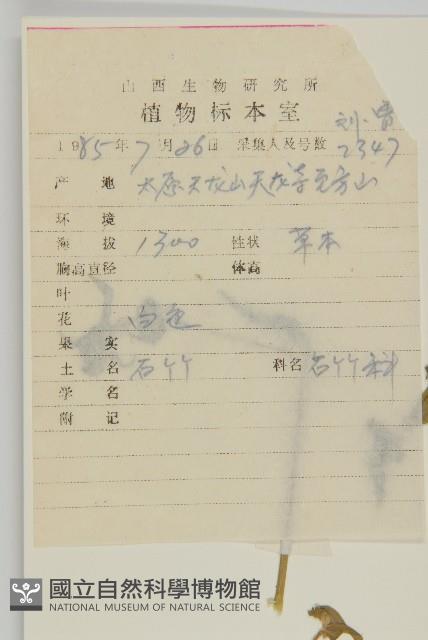 山西生物研究所
植物标本室
刘、曹
1985年7月26日 采集人及号数 2347
产地 太原天龙山天龙寺元方山
环境
海拔 1300 性状 草本
胸高直径 体高
叶
花 白色
果实
土名 石竹 科名 石竹科
学名
附记
國立自然科學博物館
NATIONAL MUSEUM OF NATURAL SCIENCE